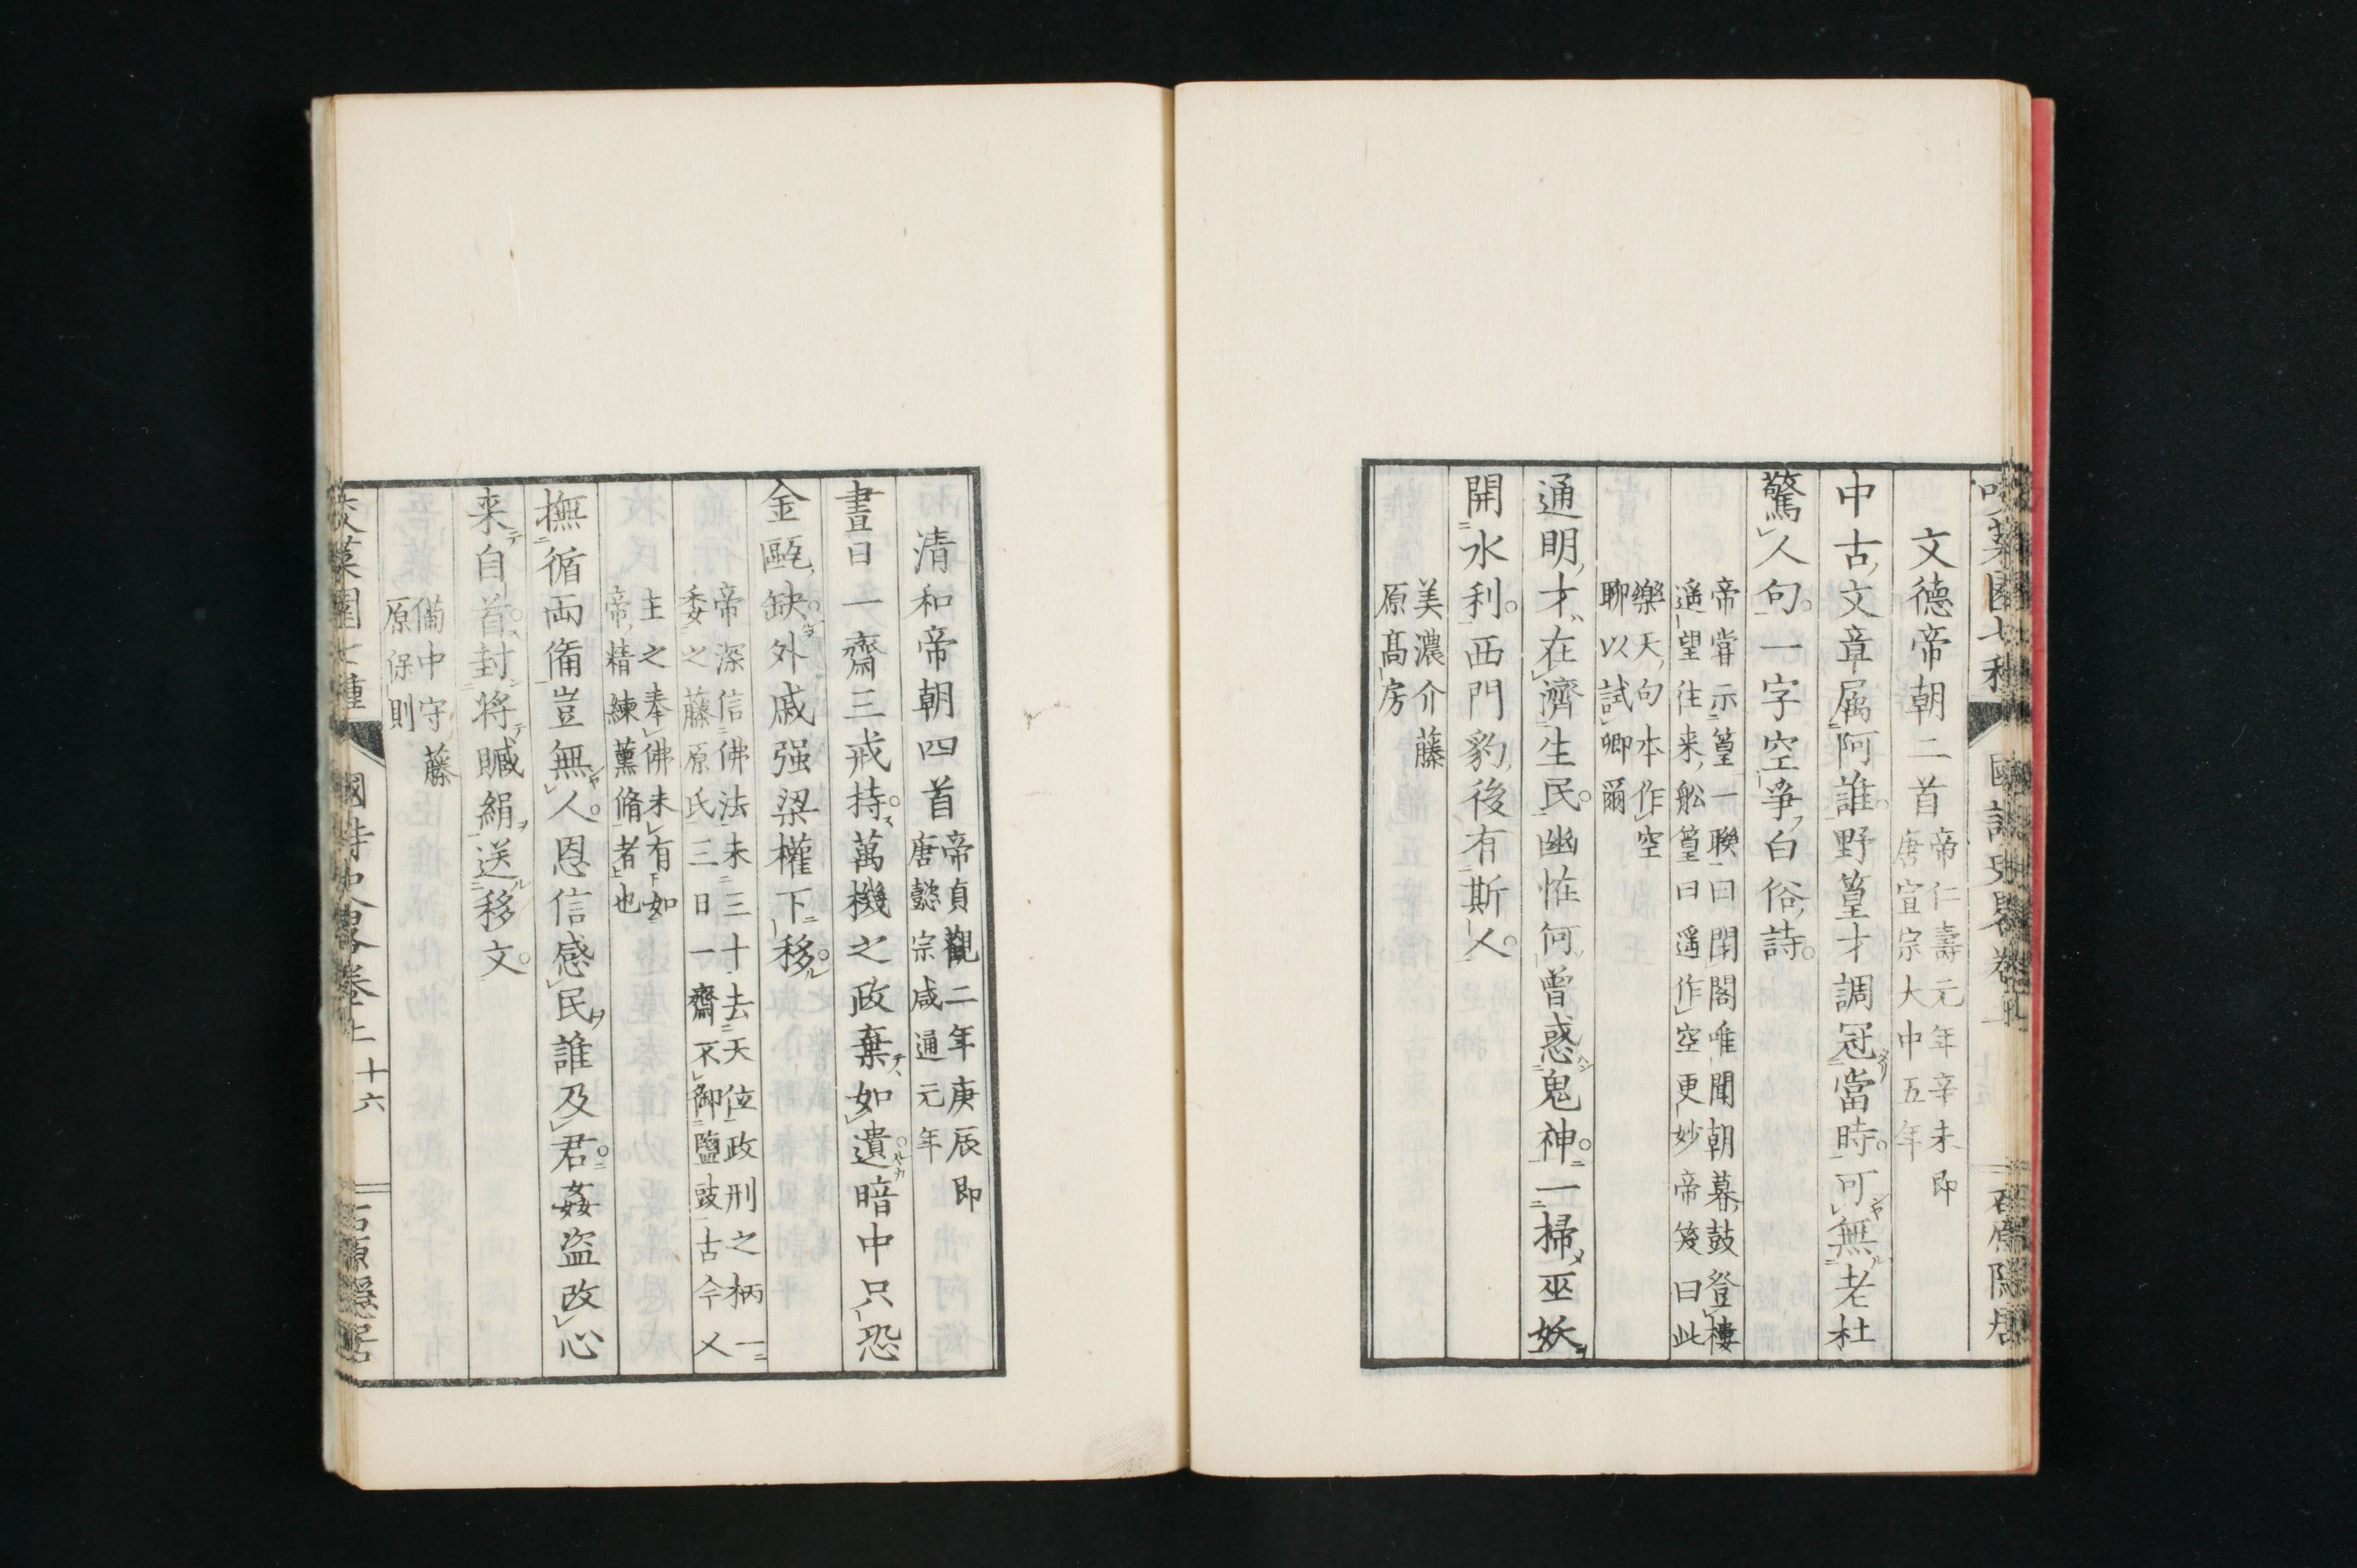 文德帝朝二首
帝仁壽元年辛未即
唐宣宗大中五年
中古文章属阿誰。野篁才調冠當時。可無老杜
驚人句。一字空爭白俗詩。
帝甞示篁一聯曰閉閣唯聞朝暮鼓登樓
遥望往来船篁曰遥作空更妙帝笑曰此
樂天句本作空
聊以試卿爾
通明才在濟生民。幽怪何曾惑鬼神。一掃巫妖
開水利。西門豹後有斯人。
美濃介藤
原髙房
清和帝朝四首
帝貞觀二年庚辰即
唐懿宗咸通元年
晝日一齋三戒持。萬機之政棄如遺。暗中只恐
金甌缺。外戚强梁權下移。
帝深信佛法未三十去天位政刑之柄一
委之藤原氏三日一齋不御鹽豉古今人
主之奉佛未有如
帝精練薰脩者也
撫循両備豈無人。恩信感民誰及君。姦盜改心
来自首。封將贓絹送移文。
備中守藤
原保則
國詩史畧卷上 十六
石原隱居